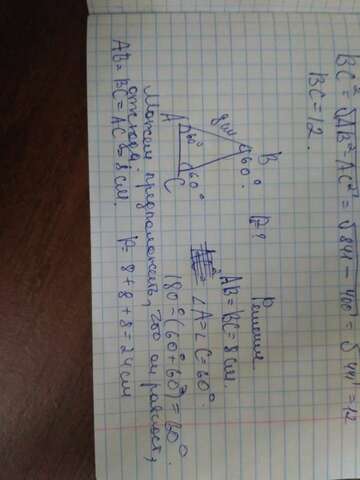 BC² = √AB² - AC² = √841 - 400 = √441 = 12
BC = 12.
B
60°
8 см
A
60°
C
60°
P-?
Решение
AB = BC = 8 см.
∠A = ∠C = 60°.
180° - (60° + 60°) = 60°.
Можем предположить, что он равност,
отсюда.
AB = BC = AC = 8 см. P = 8 + 8 + 8 = 24 см